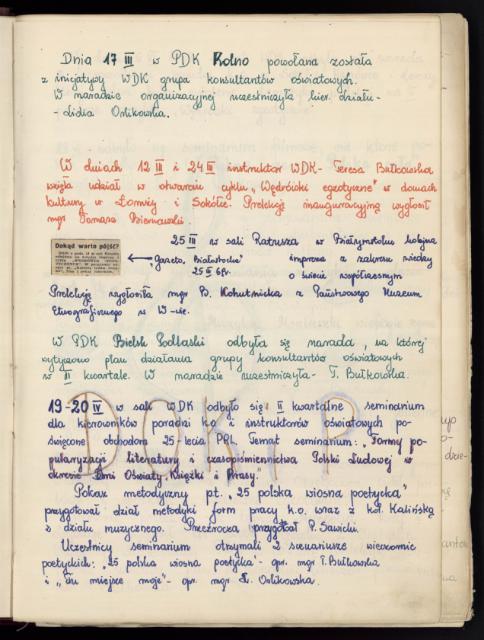 Dnia 17 III w PDK Kolno powołana została
z inicjatywy WDK grupa konsultantów oświatowych.
W naradzie organizacyjnej uczestniczyła kier. działu -
- Lidia Orlikowska.
W dniach 12 III i 24 III instruktor WDK - Teresa Butkowska
wzięła udział w otwarciu cyklu „Wędrówki egzotyczne" w domach
kultury w Łomży i Sokółce. Prelekcję inauguracyjną wygłosił
mgr Tomasz
Dokąd warto pójść?
25 III w sali Ratusza w Białymstoku kolejna
„Gazeta Białostocka" impreza z zakresu wiedzy
25 III 69r. o świecie współczesnym
Prelekcję wygłosiła mgr B. Kohutnicka z Państwowego Muzeum
Etnograficznego w W-wie.
W PDK Bielsk Podlaski odbyła się narada, na której
wytyczono plan działania grupy konsultantów oświatowych
w II kwartale. W naradzie uczestniczyła - T. Butkowska.
19-20 IV w sali WDK odbyło się II kwartalne seminarium
dla kierowników poradni k.o. i instruktorów oświatowych po-
święcone obchodom 25-lecia PRL. Temat seminarium: „Formy po-
pularyzacji literatury i czasopiśmiennictwa Polski Ludowej w
okresie Dni Oświaty, Książki i Prasy."
Pokaz metodyczny pt. „25 polska wiosna poetycka"
przygotował dział metodyki form pracy k.o. wraz z kol. Kalińską
z działu muzycznego. Przeźrocza przygotował P. Sawicki.
Uczestnicy seminarium otrzymali 2 scenariusze wieczornic
poetyckich: „25 polska wiosna poetycka" - opr. mgr T. Butkowska
i „Tu miejsce moje" - opr. mgr L. Orlikowska.